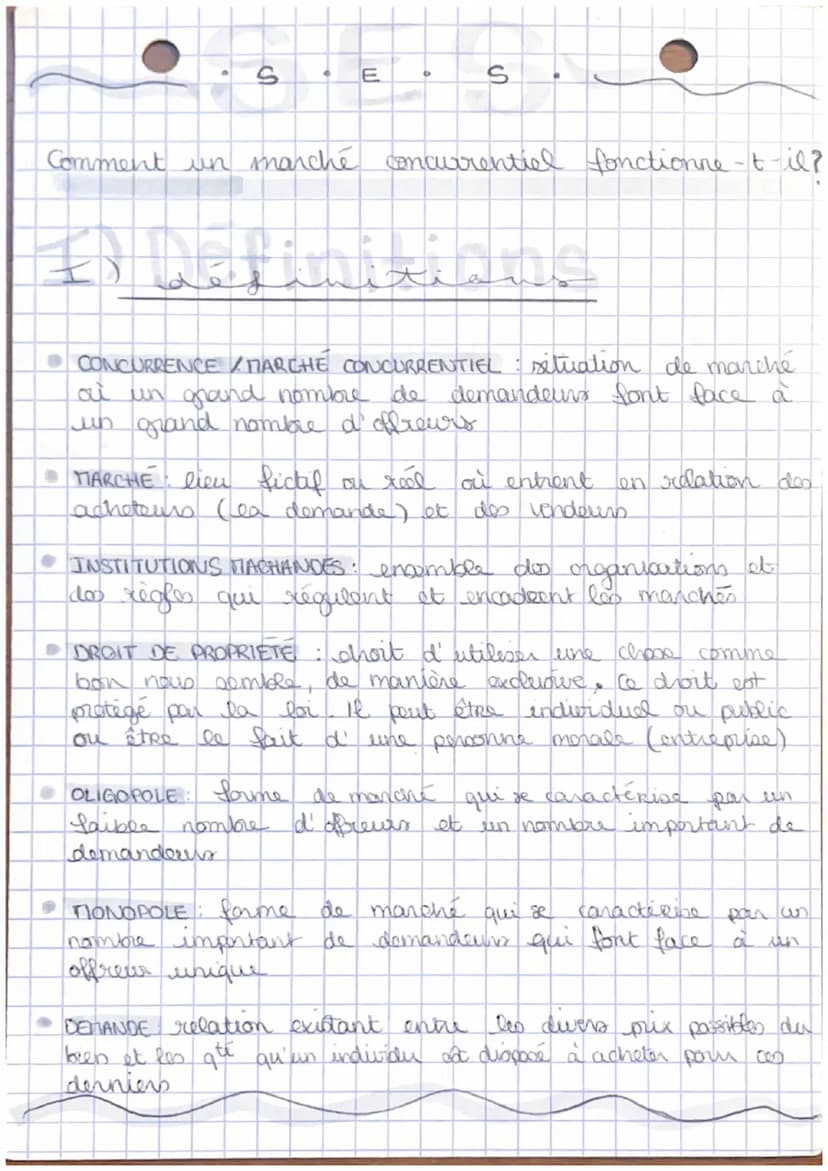 SES
• S • E • S •
Comment un marché concurrentiel fonctionne-t-il?
I) Définitions
I) définitions
• CONCURRENCE / MARCHÉ CONCURRENTIEL : situation de marché
où un grand nombre de demandeurs font face à
un grand nombre d'offreurs
• MARCHÉ : lieu fictif ou réel où entrent en relation des
acheteurs (la demande) et des vendeurs
• INSTITUTIONS MACHANDES : ensemble des organisations et
des règles qui régulent et encadrent les marchés
• DROIT DE PROPRIÉTÉ : droit d'utiliser une chose comme
bon nous semble, de manière exclusive. Ce droit est
protégé par la loi. Il peut être individuel ou public
ou être le fait d'une personne morale (entreprise)
• OLIGOPOLE : forme de marché qui se caractérise par un
faible nombre d'offreurs et un nombre important de
demandeurs
• MONOPOLE : forme de marché qui se caractérise par un
nombre important de demandeurs qui font face à un
offreur unique
• DEMANDE : relation existant entre les divers prix possibles du
bien et les qté qu'un individu est disposé à acheter pour ces
derniers